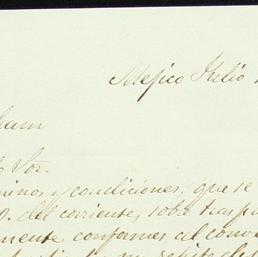 Mejico Julio
ham
Sor.
minos y condiciones, que se
del corriente, sobre trasp
mente conformes al conv